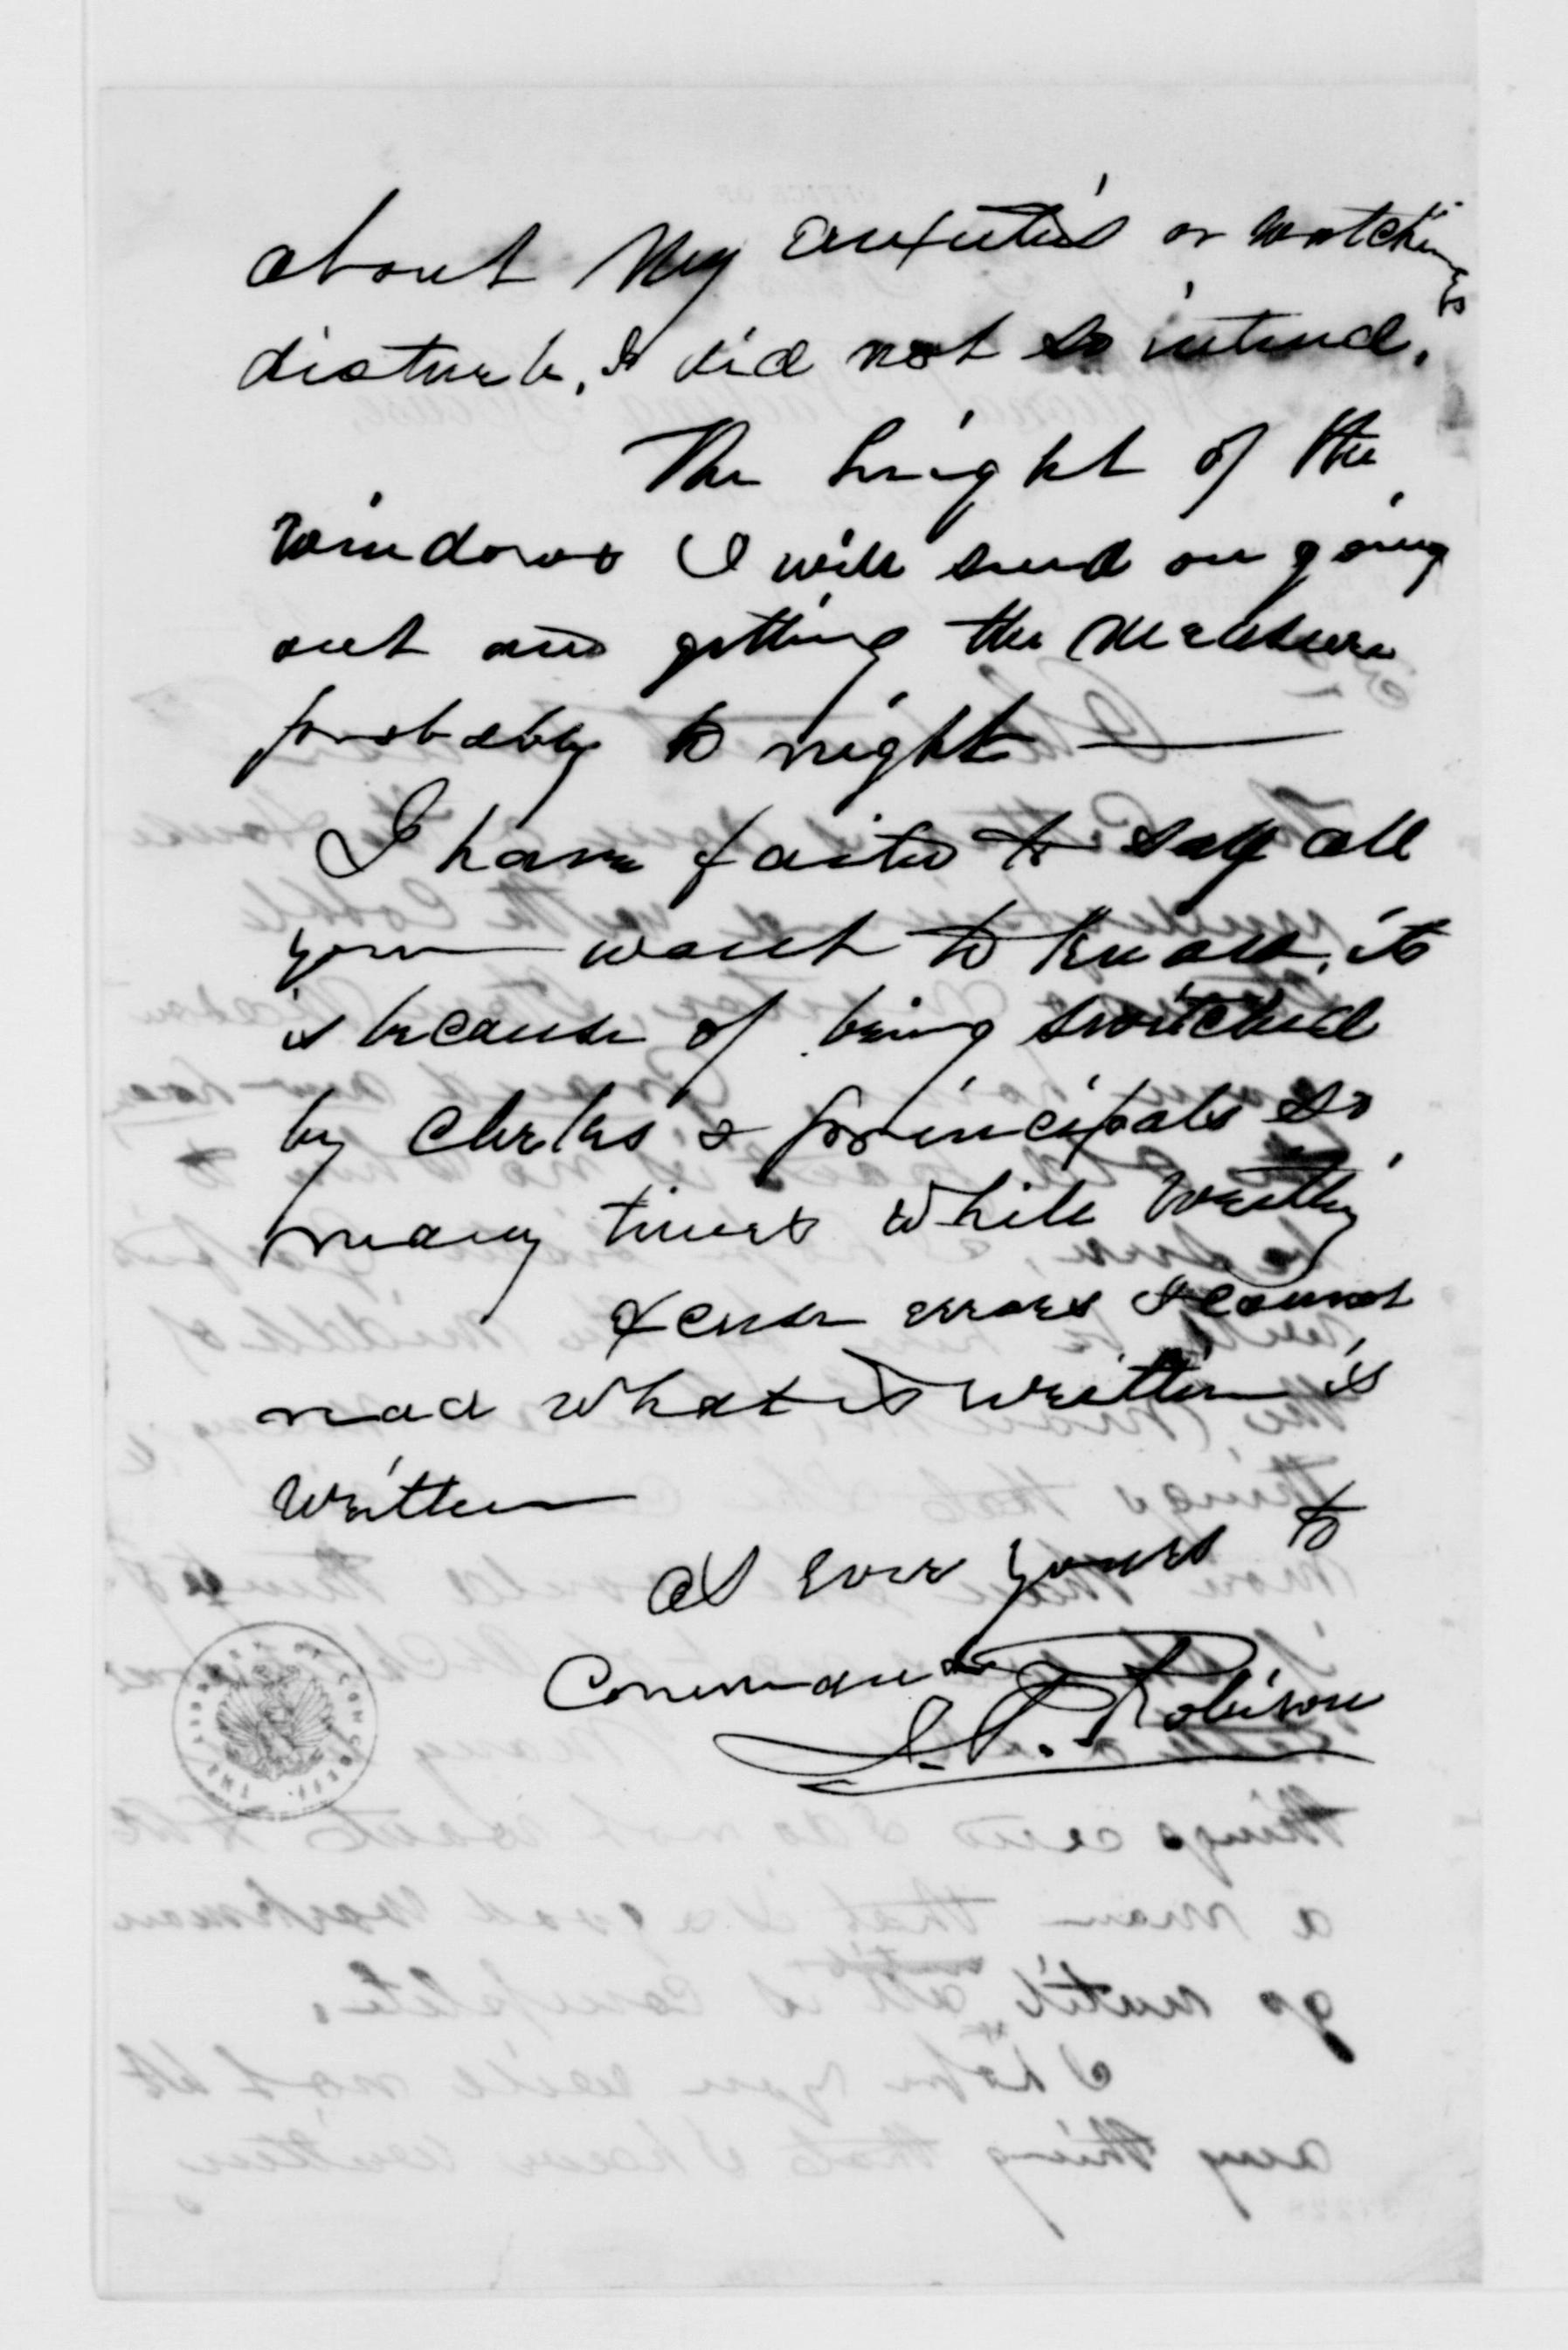 about My anxieties or watching to
disturb, I did not so intend.
The hight of the
windows I will send on going
out and getting the measure
probably to night —
I have failed to say all
you want to know, it
is because of being switched
by clerks & principals so
many times while writing
Excuse errors I cannot
read what is written is
written
As ever yours to
Command
J. P. Robison
THE LIBRARY OF CONGRESS